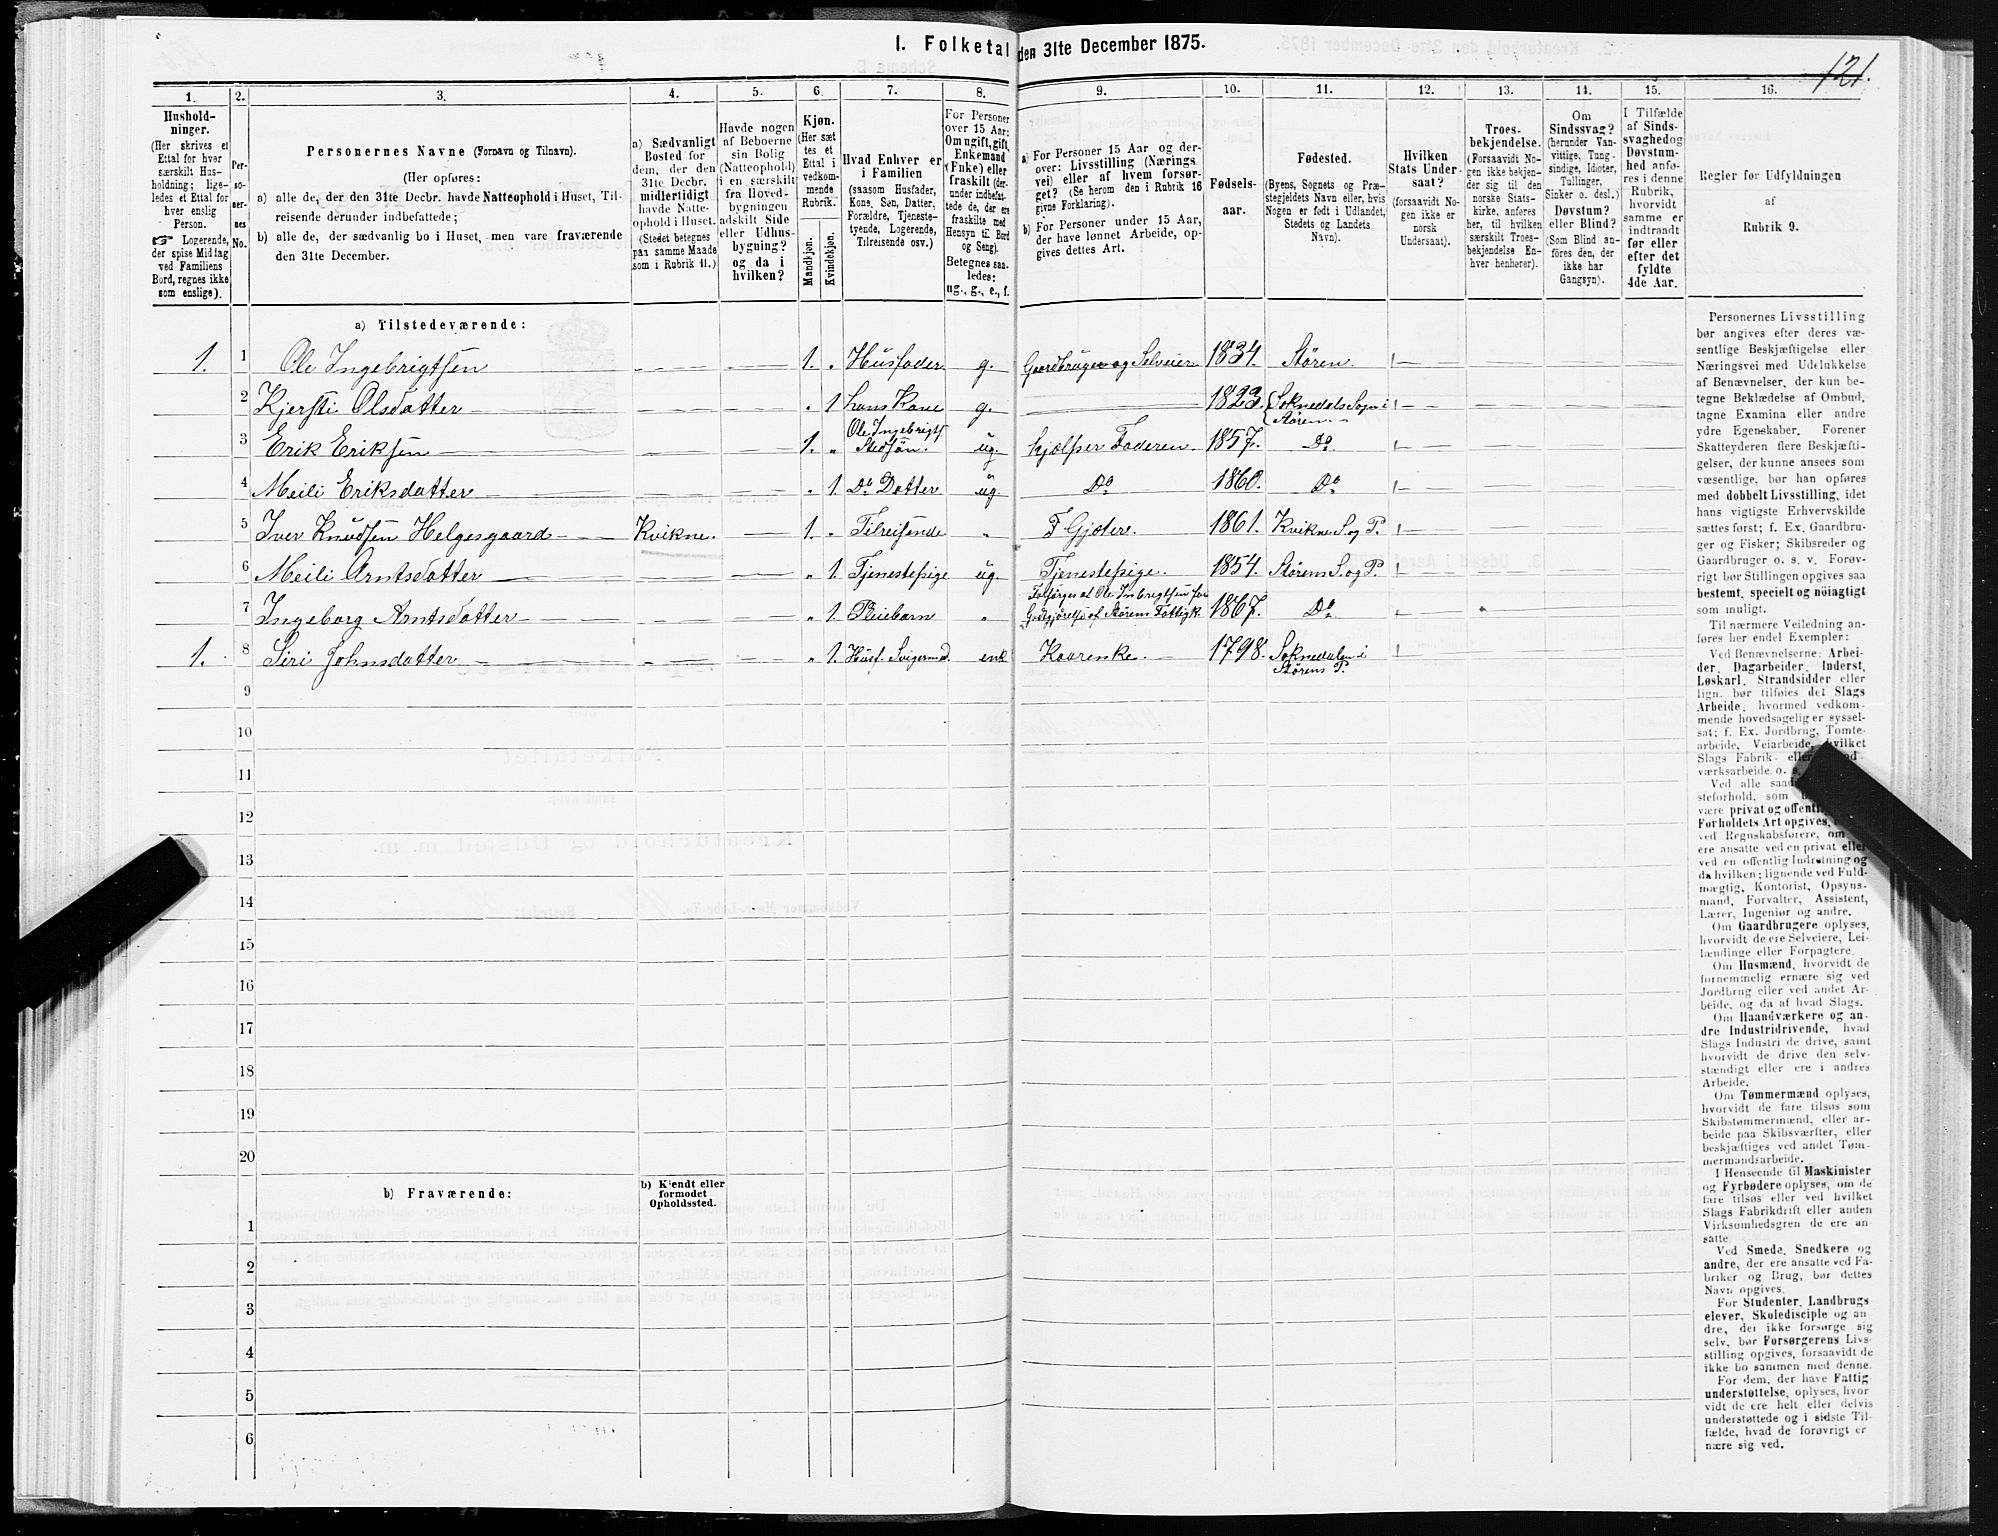 121.
I. Folketal den 31te December 1875.
1.
Hushold-
ninger.
(Her skrives et
Ettal for hver
særskilt Hus-
holdning; lige-
ledes et Ettal for
hver enslig
Person.
☞ Logerende,
der spise Middag
ved Familiens
Bord, regnes ikke
som enslige).
2.
Per-
so-
ner-
nes
No.
3.
Personernes Navne (Fornavn og Tilnavn).
(Her opføres:
a) alle de, der den 31te Decbr. havde Natteophold i Huset, Til-
reisende derunder indbefattede;
b) alle de, der sædvanlig bo i Huset, men vare fraværende
den 31te December.
4.
a) Sædvanligt
Bosted for
dem, der den
31te Decbr.
midlertidigt
havde Natte-
ophold i Huset.
(Stedet betegnes
paa samme Maade
som i Rubrik 11.)
5.
Havde nogen
af Beboerne
sin Bolig
(Natteophold)
i en særskilt
fra Hoved-
bygningen
adskilt Side
eller Udhus-
bygning?
og da i
hvilken?
6.
Kjøn.
(Her sæt
tes et
Ettal i
vedkom-
mende
Rubrik.)
Mandkjøn.
Kvindekjøn.
7.
Hvad Enhver er
i Familien
(saasom Husfader,
Kone, Søn, Datter,
Forældre, Tjeneste-
tyende, Logerende,
Tilreisende osv.)
8.
For Personer
over 15 Aar:
Om ugift, gift,
Enkemand
(Enke) eller
fraskilt (der-
under indbefat-
tede de, der ere
fraskilte med
Hensyn til Bord
og Seng).
Betegnes saa-
ledes:
ug., g., e., f.
9.
a) For Personer 15 Aar og der-
over: Livsstilling (Nærings
vei) eller af hvem forsør-
get? (Se herom den i Rubrik 16
givne Forklaring).
b) For Personer under 15 Aar,
der have lønnet Arbeide, op-
gives dettes Art.
10.
Fødsels-
aar.
11.
Fødested.
(Byens, Sognets og Præ-
stegjeldets Navn eller, hvis
Nogen er født i Udlandet,
Stedets og Landets
Navn).
12.
Hvilken
Stats Under-
saat?
(forsaavidt No-
gen ikke er
norsk
Undersaat).
13.
Troes-
bekjendelse.
(Forsaavidt No-
gen ikke bekjen-
der sig til den
norske Stats-
kirke, anføres
her, til hvilken
særskilt Troes-
bekjendelse En-
hver henhører).
14.
Om
Sindssvag?
(herunder Van-
vittige, Tung-
sindige, Idioter,
Tullinger,
Sinker o. desl.)
Døvstum?
eller Blind?
(Som Blind an-
føres den, der
ikke har
Gangsyn).
15.
I Tilfælde
af Sinds-
svaghed og
Døvstum-
hed anfø-
res i denne
Rubrik,
hvorvidt
samme er
indtraadt
før eller
efter det
fyldte
4de Aar.
16.
Regler for Udfyldningen
af
Rubrik 9.
a) Tilstedeværende:
1. 1 Ole Ingebrigtsen 1. „ Husfader g. Gaardbruger og Selveier 1834. Støren.
2 Kjersti Olsdatter „ 1 hans Kone g. 1823. Soknedals Sogn i Støren.
3 Erik Eriksen 1. „ Ole Ingebrigts. Stedsøn. ug. hjælper Faderen. 1857. Do
4 Meili Eriksdatter „ 1. Do Datter ug. Do 1860. Do
5 Iver Knudsen Helgesgaard Kvikne. 1. „ Tilreisende „ F Gjæter. 1861. Kvikne S. og P.
6 Meili Arntsdatter „ 1. Tjenestepige ug. Tjenestepige. 1854. Størens S. og P.
7 Ingeborg Arntsdatter „ 1. Pleiebarn „ Forsørges af Ole Inbregtsen for Godtgjørelse af Størens Fattigk. 1867. Do
1. 8 Siri Johnsdatter „ 1. Husf. Svigermod. enk Kaarenke. 1798. Soknedalen i Størens P.
9
10
11
12
13
14
15
16
17
18
19
20
b) Fraværende:
b) Kjendt eller
formodet
Opholdssted.
1
2
3
4
5
6
Personernes Livsstilling
bør angives efter deres væ-
sentlige Beskjæftigelse eller
Næringsvei med Udelukkelse
af Benævnelser, der kun be-
tegne Beklædelse af Ombud,
tagne Examina eller andre
ydre Egenskaber. Forener
Skatteyderen flere Beskjæfti-
gelser, der kunne ansees som
væsentlige, bør han opføres
med dobbelt Livsstilling, idet
hans vigtigste Erhvervskilde
sættes først; f. Ex. Gaardbru-
ger og Fisker; Skibsreder og
Gaardbruger o. s. v. Forøv-
rigt bør Stillingen opgives saa
bestemt, specielt og nøiagtigt
som muligt.
Til nærmere Veiledning an-
føres her endel Exempler:
Ved Benævnelserne: Arbei-
der, Dagarbeider, Inderst,
Løskarl, Strandsidder eller
lign. bør tilføies det Slags
Arbeide, hvormed vedkom-
mende hovedsagelig er syssel-
sat; f. Ex. Jordbrug, Tomte-
arbeide, Veiarbeide, hvilket
Slags Fabrik- eller
værksarbeide o. s.
Ved alle saad
steforhold, som
være privat og offentl
Forholdets Art opgives,
ved Regnskabsførere, om
ere ansatte ved en privat eller
ved en offentlig Indretning og
da hvilken; lignende ved Fuld-
mægtig, Kontorist, Opsyns-
mand, Forvalter, Assistent,
Lærer, Ingeniør og andre.
Om Gaardbrugere oplyses,
hvorvidt de ere Selveiere, Lei-
lændinge eller Forpagtere.
Om Husmænd, hvorvidt de
fornemmelig ernære sig ved
Jordbrug eller ved andet Ar-
beide, og da af hvad Slags.
Om Haandværkere og an-
dre Industridrivende, hvad
Slags Industri de drive, samt
hvorvidt de drive den selv-
stændigt eller ere i andres
Arbeide.
Om Tømmermænd oplyses,
hvorvidt de fare tilsøs som
Skibstømmermænd, eller ar-
beide paa Skibsværfter, eller
beskjæftiges ved andet Tøm-
mermandsarbeide.
I Henseende til Maskinister
og Fyrbødere oplyses, om de
fare tilsøs eller ved hvilket
Slags Fabrikdrift eller anden
Virksomhedsgren de ere an-
satte
Ved Smede, Snedkere og
andre, der ere ansatte ved Fa-
briker og Brug, bør dettes
Navn opgives.
For Studenter, Landbrugs-
elever, Skoledisciple og an-
dre, der ikke forsørge sig
selv, bør Forsørgerens Livs-
stilling opgives, forsaavidt de
ikke bo sammen med denne.
For dem, der have Fattig-
understøttelse, oplyses, hvor
vidt de ere helt eller delvis
understøttede og i sidste Til-
fælde, hvad de forøvrigt er
nære sig ved.